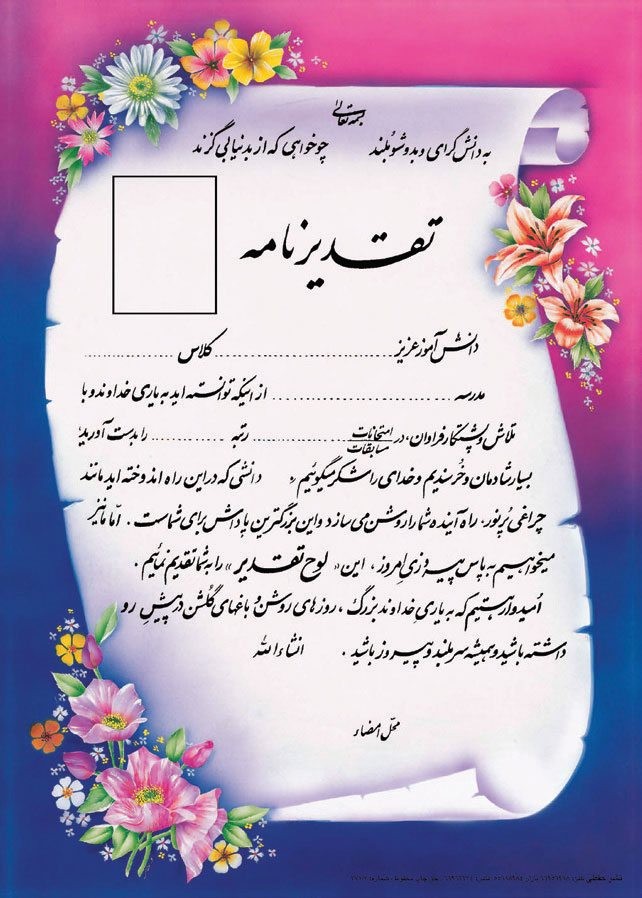 بسمه تعالی
به دانش گرای و بدو شو بلند چو خواهی که از بد نیابی گزند
تقدیرنامه
دانش آموز عزیز........................................ کلاس ....................
مدرسه ............................ از اینکه توانسته اید به یاری خداوند و با
تلاش و پشتکار فراوان، در امتحانات مسابقات .................... رتبه .................. را بدست آورید؛
بسیار شادمان و خُرسندیم و خدای را شکر میگوئیم. دانشی که در این راه اندوخته اید مانند
چراغی پُر نور، راه آینده شما را روشن می سازد و این بزرگترین پاداش برای شماست. اما ما نیز
میخواهیم به پاس پیروزی امروز، این «لوح تقدیر» را به شما تقدیم نمائیم.
اُمیدوار هستیم که به یاری خداوند بزرگ، روزهای روشن و باغهای گُلشن در پیشِ رو
داشته باشید و همیشه سربلند و پیروز باشید. انشاءالله
محل امضاء
نشر حفظی